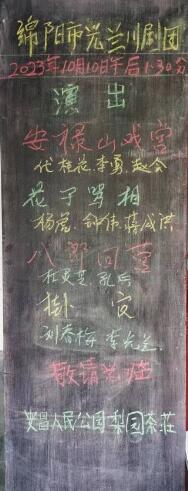 绵阳市光兰川剧团
2023年10月10日午后1:30分
演出
安禄山戏宫
代桂花 李勇 赵会
花子骂相
杨莺 钟伟 蒋成洪
八郎回营
杜灵芝 孔后
刘春梅 李光
敬请光临
人民公园梨园茶莊